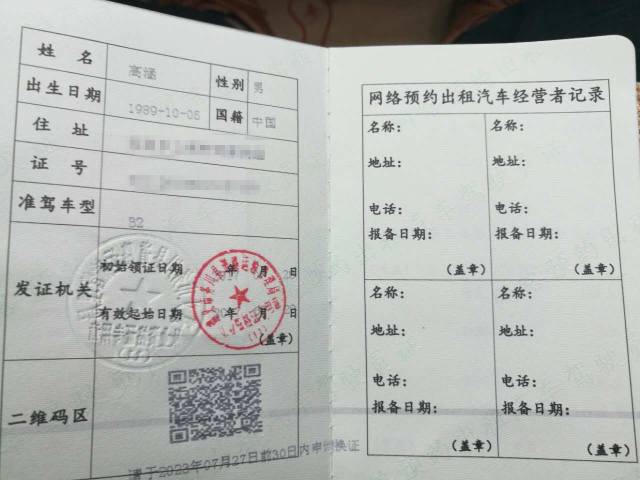 姓 名 高涵 性别 男
出生日期 1989-10-06 国籍 中国
住 址
证 号
准驾车型 B2
发证机关
初始领证日期 年 月 日
有效起始日期 年 月 日
(盖章)
二维码区
请于2023年07月27日前30日内申请换证
网络预约出租汽车经营者记录
名称: 名称:
地址: 地址:
电话: 电话:
报备日期: 报备日期:
(盖章) (盖章)
名称: 名称:
地址: 地址:
电话: 电话:
报备日期: 报备日期:
(盖章) (盖章)